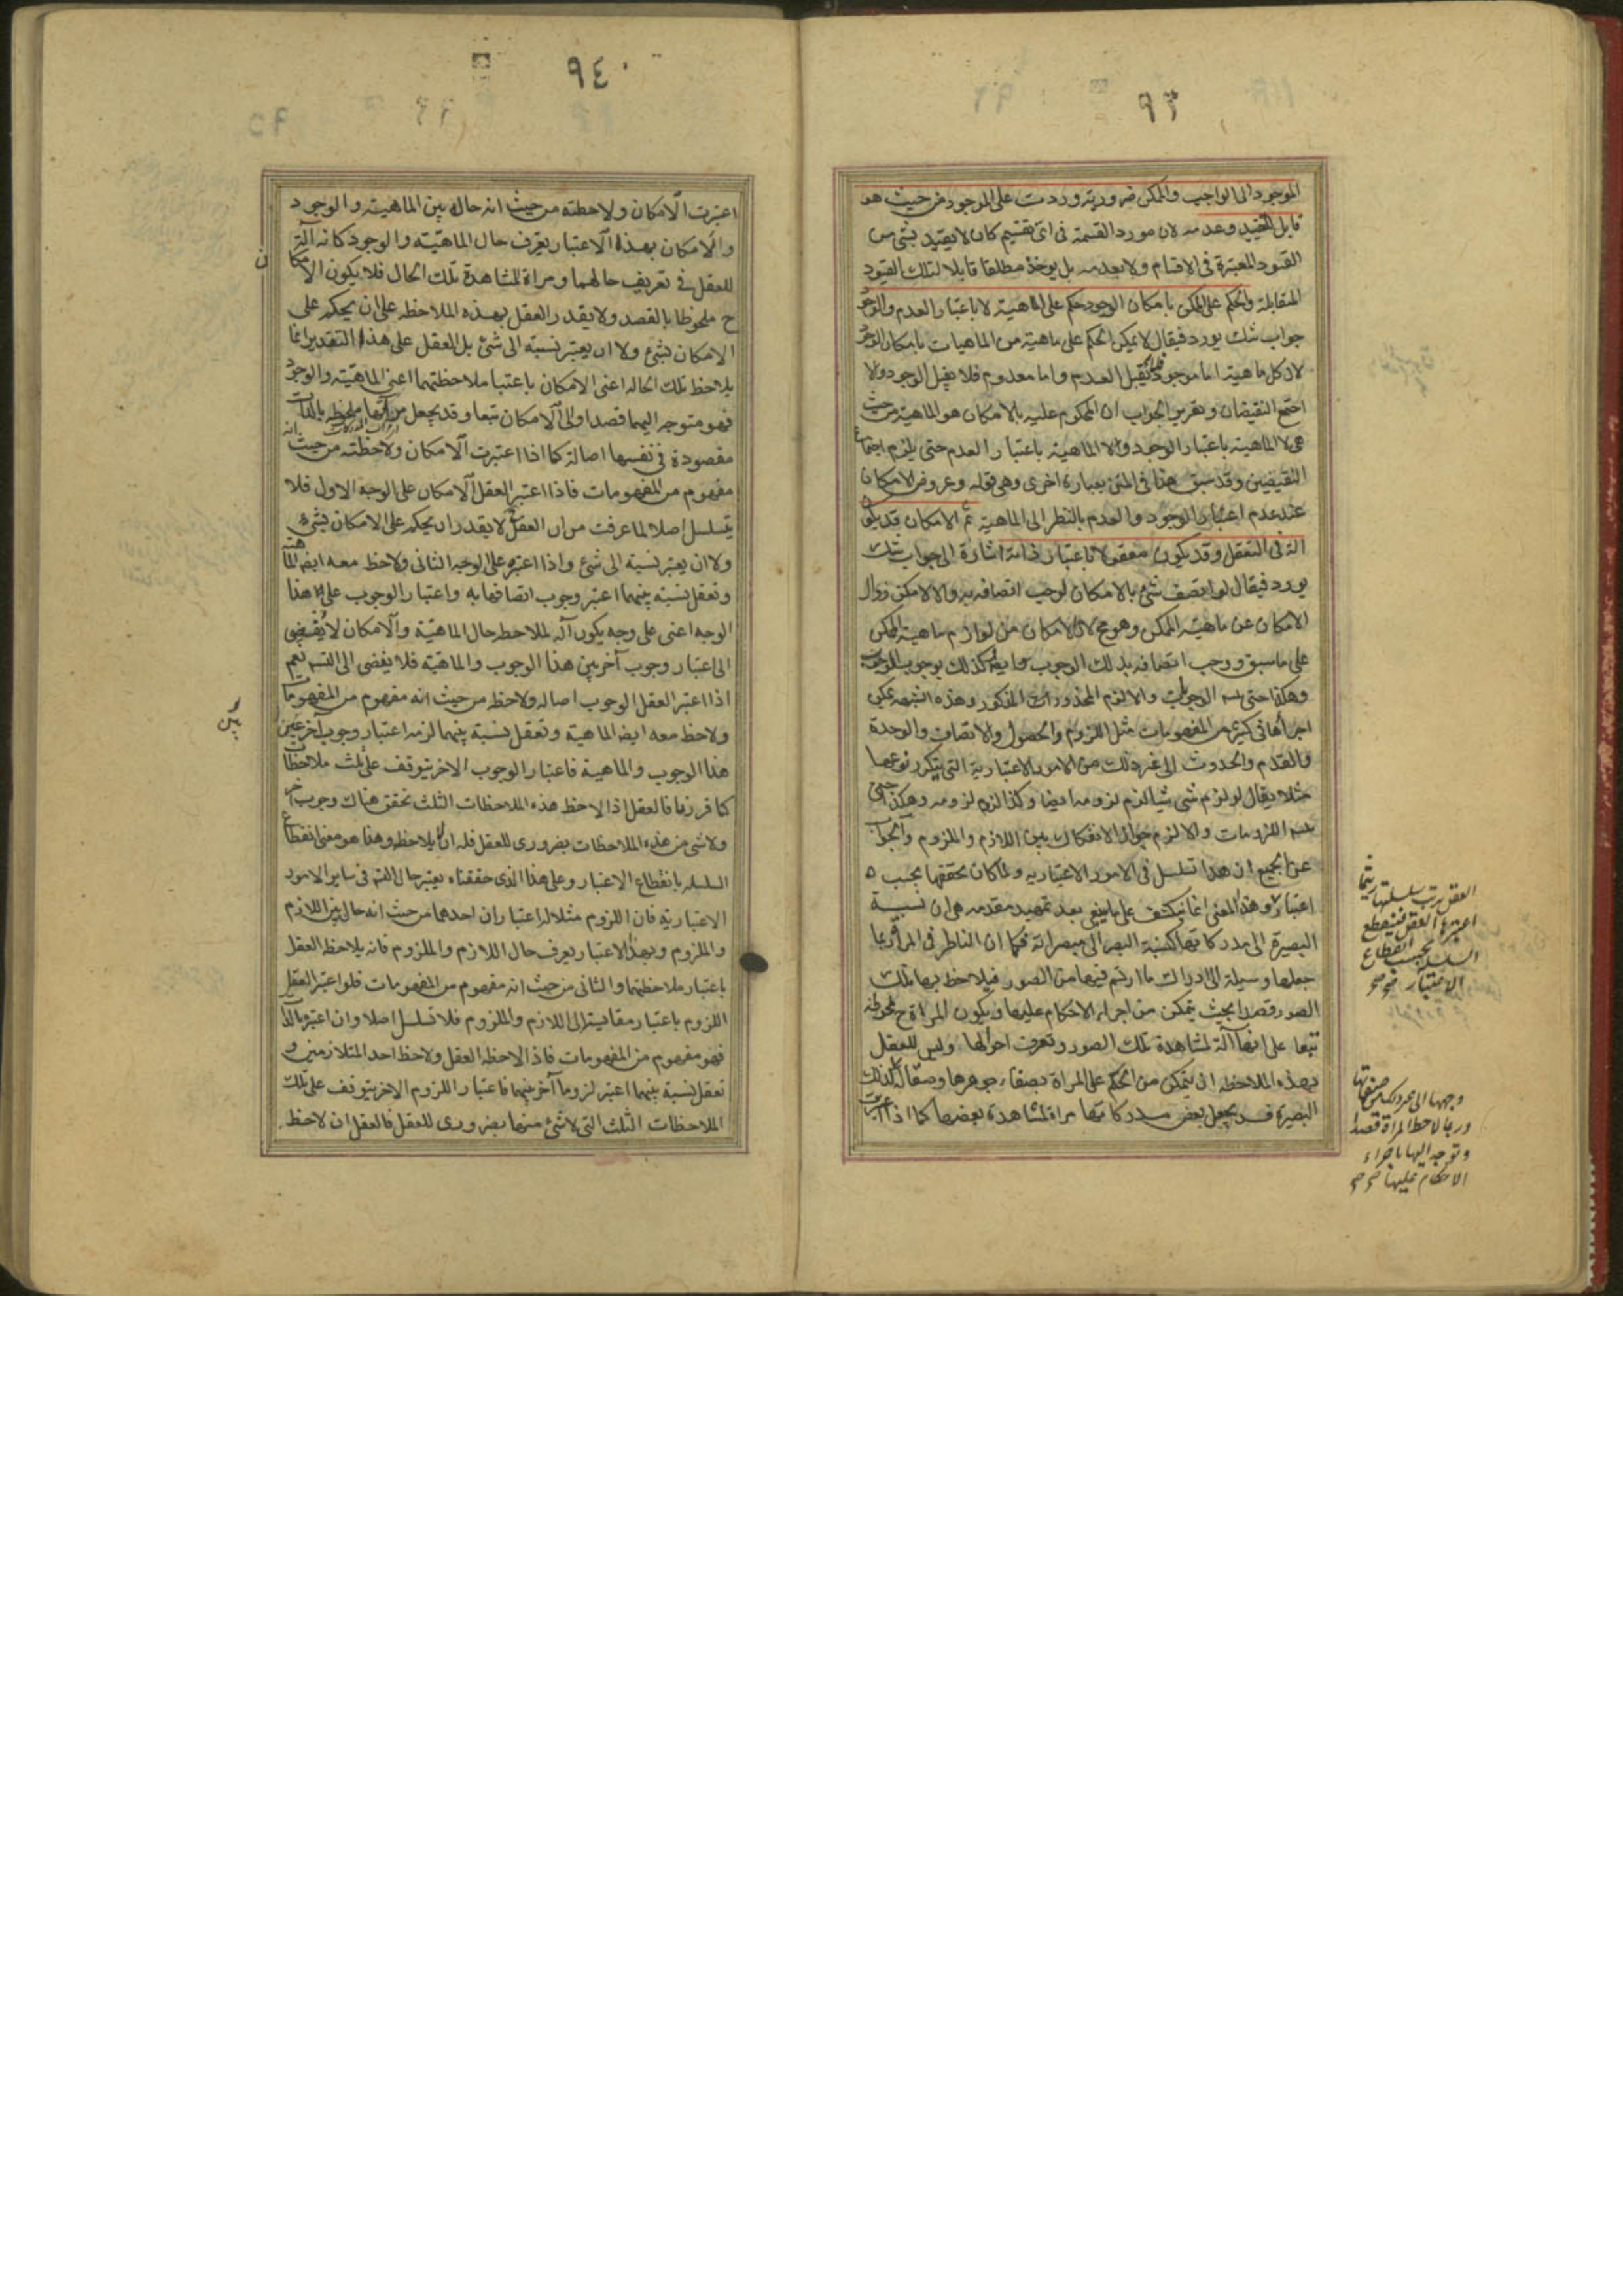 ٩٣
الموجود الى الواجب والممكن ضرورية وردت على الموجود من حيث هو
قابل للتقييد وعدمه لان مورد القسمة فى اى تقسيم كان لا يتقيد بشى من
القيود المعتبرة فى الاقسام ولا بعدمه بل يوخذ مطلقا قابلا لتلك القيود
المتقابلة والحكم على الممكن بامكان الوجود حكم على الماهية لا باعتبار العدم والوجود
جواب شك يورد فيقال لا يمكن الحكم على ماهية من الماهيات بامكان الوجود
لان كل ماهية اما موجود فلا تقبل العدم واما معدوم فلا يقبل الوجود والا
اجتمع النقيضان وتقرير الجواب ان المحكوم عليه بالامكان هو الماهية من حيث
هى لا الماهية باعتبار الوجود ولا الماهية باعتبار العدم حتى يلزم اجتماع
النقيضين وقد سبق هذا فى المتن بعبارة اخرى وهى قوله وعروض الامكان
عند عدم اعتبار الوجود والعدم بالنظر الى الماهية ثم الامكان قد يكون
الة فى التعقل وقد يكون معقولا باعتبار ذاته اشارة الى جواب شك
يورد فيقال لو اتصف شئ بالامكان لوجب اتصافه به والا لامكن زوال
الامكان عن ماهية الممكن وهو مح لان الامكان من لوازم ماهية الممكن
على ما سبق ووجب اتصافه بذلك الوجوب كذلك بوجوب الوجوب
وهكذا حتى يتسم الوجوبات والا لزم المحذور المذكور وهذه الشبهه يمكن
اجراؤها فى كثير من المفهومات مثل اللزوم والحصول والاتصاف والوحدة
والقدم والحدوث الى غير ذلك من الامور الاعتبارية التى يتكرر نوعها
مثلا يقال لو لزم شى شيا لزم لزومه ايضا وكذا لزوم لزومه وهكذا حتى
يتسم اللزومات والا لزم جواز الانفكاك بين اللازم والملزوم والجواب
عن الجميع ان هذا تسلسل فى الامور الاعتباريه ولما كان تحققها بحسب
اعتبار وهذا المعنى انما ينكشف على ما ينبغى بعد تمهيد مقدمه هى ان نسبة
البصيرة الى مدركاتها كنسبة البصر الى مبصراته فكما ان الناظر فى المرآة ربما
جعلها وسيلة الى ادراك ما ارتسم فيها من الصور فيلاحظ بها تلك
الصور قصدا بحيث يتمكن من اجراء الاحكام عليها ويكون المراة ح ملحوظة
تبعا على انها آلة لمشاهدة تلك الصور وتعرف احوالها وليس للعقل
بهذه الملاحظه ان يتمكن من الحكم على المراة بصفاء جوهرها وصقالها كذلك
البصيرة قد يجعل بعض مدركاتها مراة لمشاهدة بعضها كما اذا
العقل ترتب سلسلتها ريثما
اعتبرها العقل فينقطع
السلسله بحسب انقطاع
الاعتبار صح
وجهها الى
وربما لاحظ المراة قصدا
وتوجه اليها باجراء
الاحكام عليها صح
٩٤
اعتبرت الامكان ولاحظته من حيث انه حالة بين الماهية والوجود
والامكان بهذا الاعتبار يعرف حال الماهيته والوجود كانه آلة
للعقل فى تعريف حالهما ومراة لمشاهدة تلك الحال فلا يكون الامكان
ح ملحوظا بالقصد ولا يقدر العقل بهذه الملاحظه على ان يحكم على
الامكان بشئ ولا ان يعتبر نسبته الى شئ بل العقل على هذا التقدير انما
يلاحظ تلك الحاله اعنى الامكان باعتبا ملاحظتهما اعنى الماهيته والوجود
فهو متوجه اليهما قصدا والى الامكان تبعا وقد يجعل ملحوظه بالذات
مقصودة فى نفسها اصالة كما اذا اعتبرت الامكان ولاحظته من حيث انه
مفهوم من المفهومات فاذا اعتبر العقل الامكان على الوجه الاول فلا
يتسلسل اصلا لما عرفت من ان العقل ح لا يقدر ان يحكم على الامكان بشئ
ولا ان يعتبر نسبته الى شئ واذا اعتبره على الوجه الثانى ولاحظ معه ايضا الماهية
وتعقل نسبة بينهما اعتبر وجوب اتصافها به واعتبار الوجوب على هذا
الوجه اعنى على وجه يكون آلة لملاحظه حال الماهية والامكان لا يفضى
الى اعتبار وجوب آخر بين هذا الوجوب والماهية فلا يفضى الى التسم نعم
اذا اعتبر العقل الوجوب اصاله ولاحظه من حيث انه مفهوم من المفهومات
ولاحظ معه ايضا الماهية وتعقل نسبة بينهما لزمه اعتبار وجوب آخر بين
هذا الوجوب والماهية فاعتبار الوجوب الاخر يتوقف على ثلث ملاحظات
كما قررنا فالعقل اذا لاحظ هذه الملاحظات الثلث تحقق هناك وجوب آخر
ولا شى من هذه الملاحظات بضرورى للعقل فله ان لا يلاحظ وهذا هو معنى انقطاع
السلسله بانقطاع الاعتبار وعلى هذا الذى حققناه يعتبر حال التسم فى ساير الامور
الاعتبارية فان اللزوم مثلا له اعتباران احدهما من حيث انه حالة بين اللازم
والملزوم وبهذا الاعتبار يعرف حال اللازم والملزوم فانه يلاحظه العقل
باعتبار ملاحظتهما والثانى من حيث انه مفهوم من المفهومات فلو اعتبر العقل
اللزوم باعتبار مقايسته الى اللازم والملزوم فلا تسلسل اصلا وان اعتبره بالذات
فهو مفهوم من المفهومات فاذا لاحظه العقل ولاحظ احد المتلازمين و
تعقل نسبة بينهما اعتبر لزوما آخر بينهما فاعتبار اللزوم الاخر يتوقف على تلك
الملاحظات الثلث التى لا شئ منها بضرورى للعقل فالعقل ان لاحظ
بين